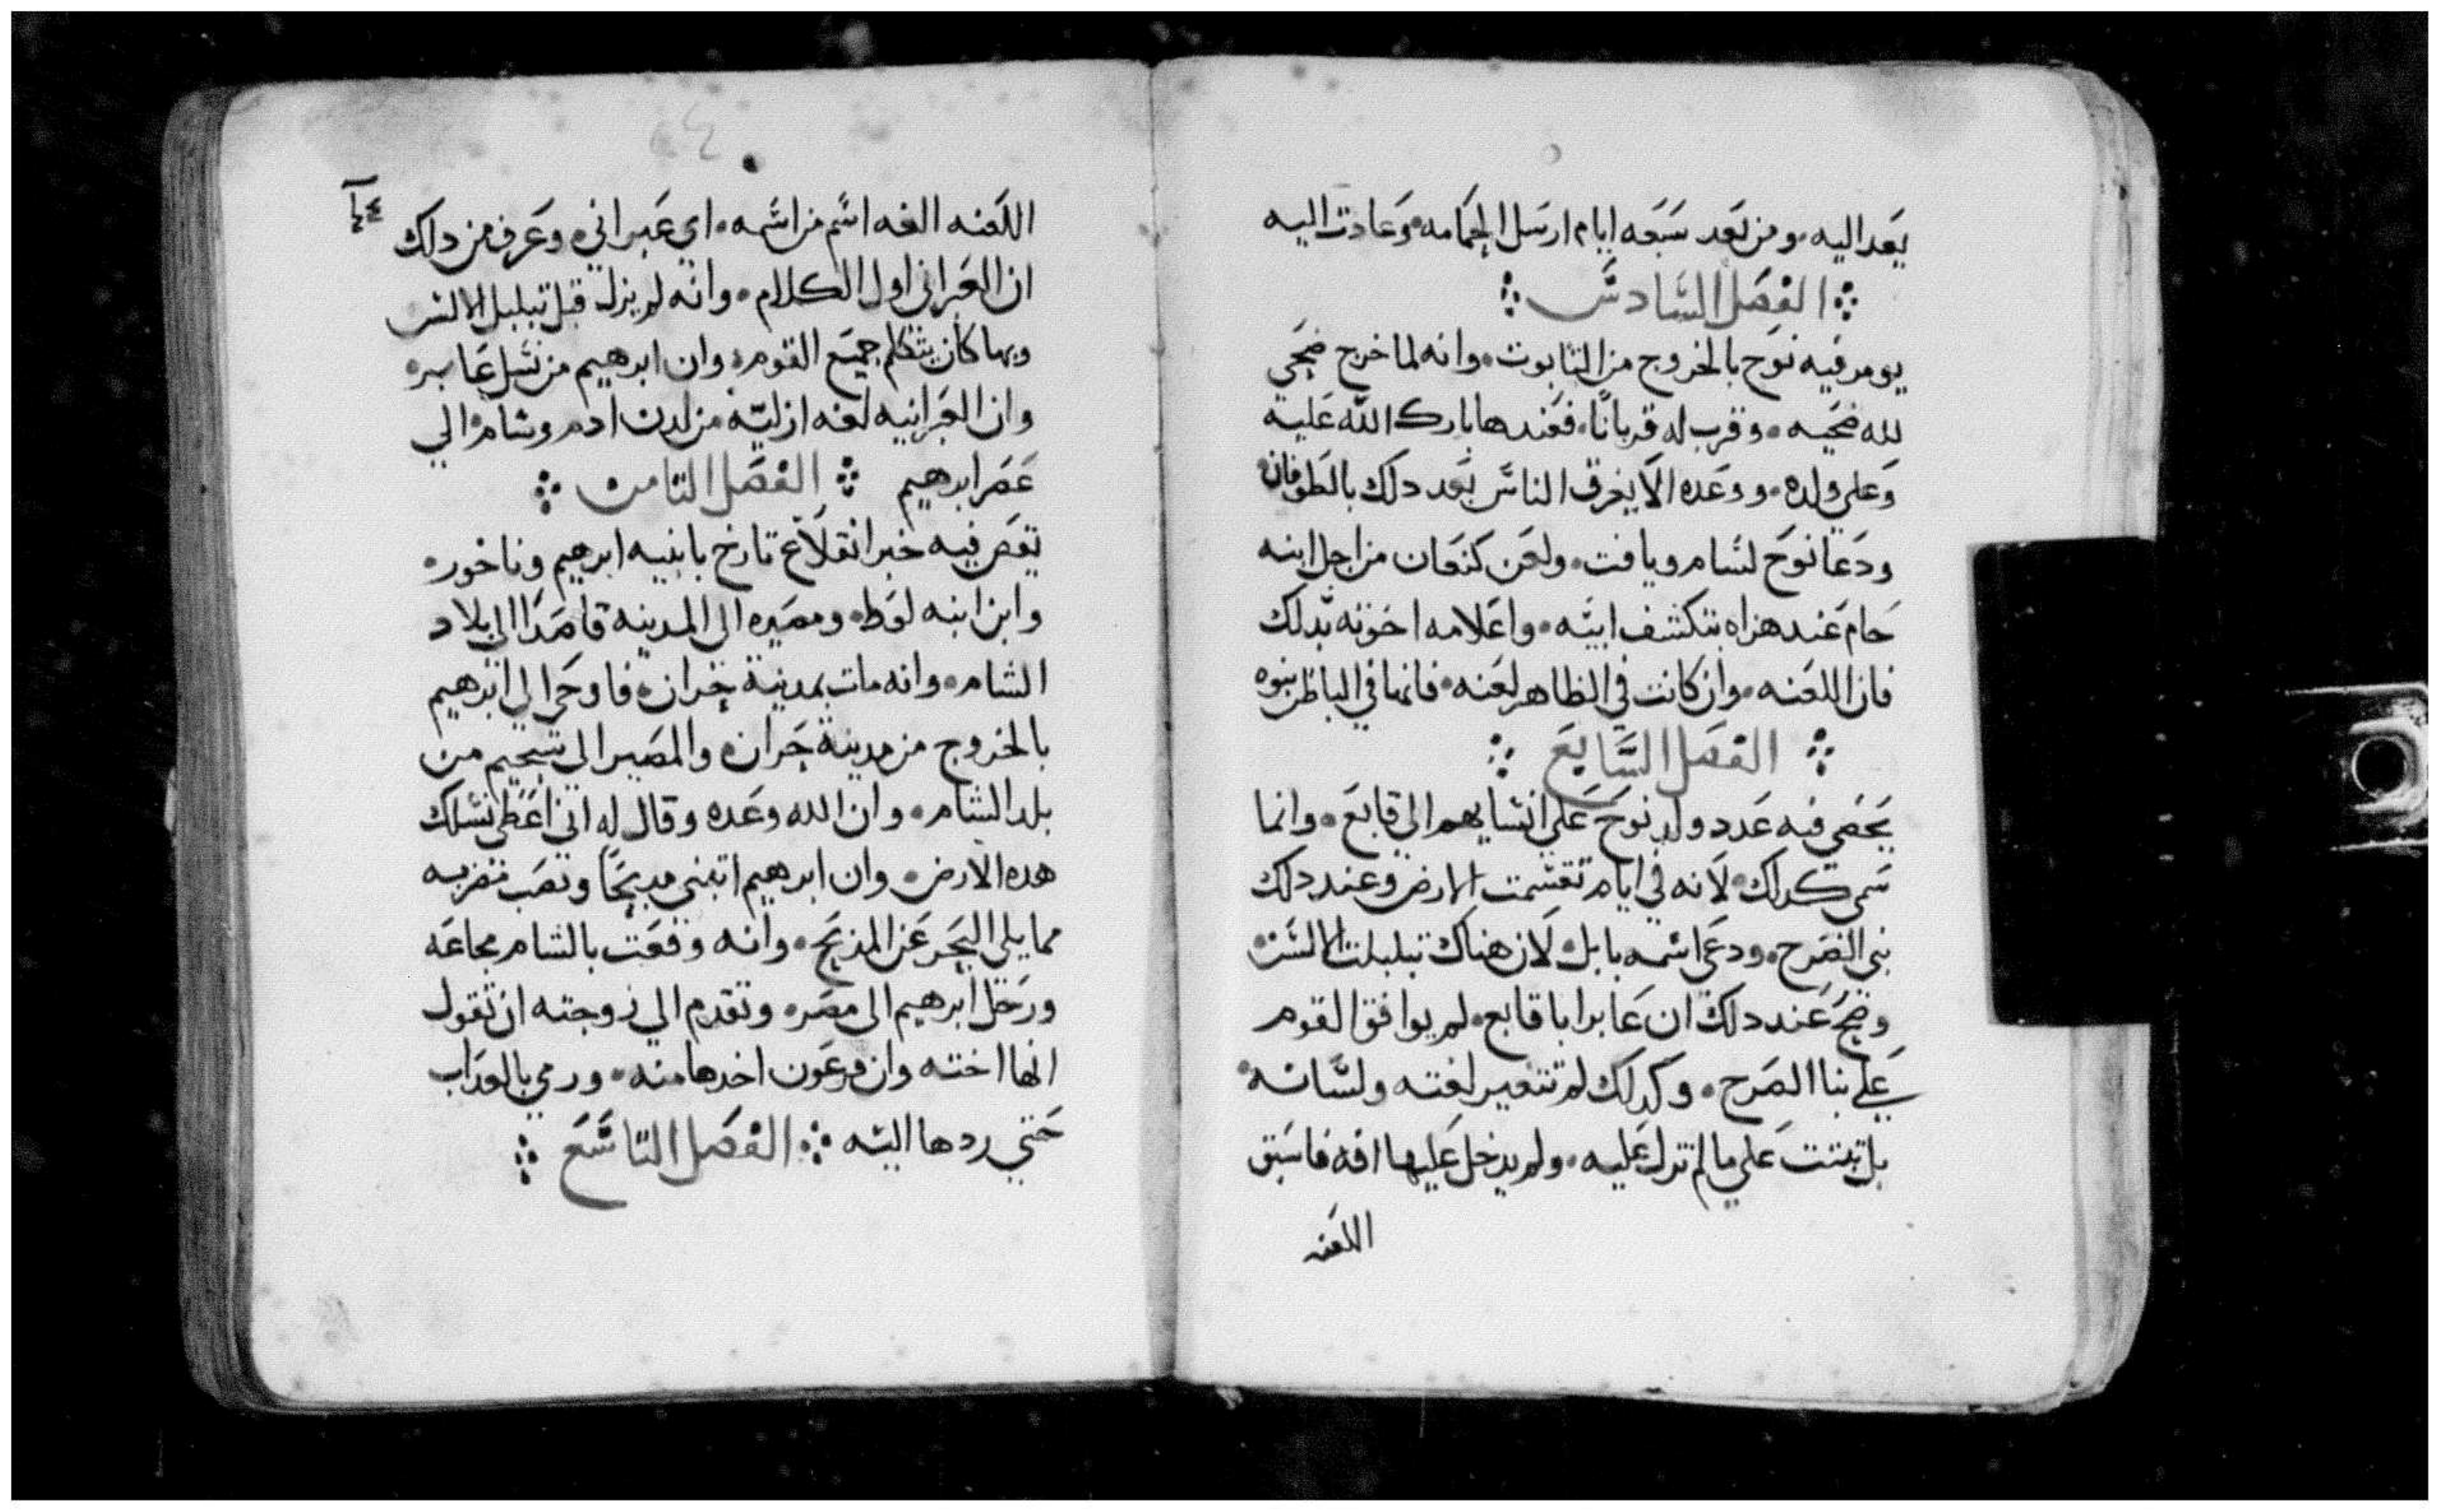 يعد اليه. ومن بعد سبعه ايام ارسل الحمامه. وعادت اليه
الفصل السادس
يومر فيه نوح بالخروج من التابوت. وانه لما خرج ضحي
لله ضحيه. وقرب له قربانًا. فعندها بارك الله عليه
وعلي ولده. ووعده الا يغرق الناس بعد دلك بالطوفان
ودعا نوح لسام ويافت. ولعن كنعان من اجل ابنه
حام عند هزاه بتكشف ابيه. واعلامه اخوته بدلك
فان اللعنه. وان كانت في الظاهر لعنه. فانها في الباطن نبوه
الفصل السابع
يحصي فيه عدد ولد نوح علي انسابهم الي قابع. وانما
سمي كدلك. لانه في ايام تقسمت الارض وعند دلك
بني الصرح. ودعي اسمه بابل. لان هناك تبلبلت الالسن
وضح عند دلك ان عابرا با قابع. لم يوافق القوم
علي بنا الصرح. وكدلك لم تتغير لغته ولسانه
بل تبتت علي ما لم تزل عليه. ولم يدخل عليها افه فاستق
اللغه
اللغه الغه اسم من اسمه. اي عبراني. وعرف من دلك
ان العبراني اول الكلام. وانه لم يزل قبل تبلبل الالسن
وبها كان يتكلم جميع القوم. وان ابرهيم من نسل عابر.
وان العبرانيه لغه ازليّه من لدن ادم وسام الي
عصر ابرهيم الفصل التامن
يقص فيه خبر انقلاع تارخ بابنيه ابرهيم وناخور.
وابن ابنه لوط. ومصيره الى المدينه قاصدا الى بلاد
الشام. وانه مات بمدينة حران. فاوحي الي ابرهيم
بالخروج من مدينة حران. والمصير الي سحيم من
بلد الشام. وان الله وعده وقال له اني اعطي نسلك
هده الارض. وان ابرهيم ابتني مدبحًا ونصب مضربه
مما يلي البحر عن المدبح. وانه وقعت بالشام مجاعه
ورحل ابرهيم الى مصر. وتقدم الي زوجته ان تقول
انها اخته وان فرعون اخدها منه. ورمي بالعداب
حتي ردها اليه الفصل التاسع